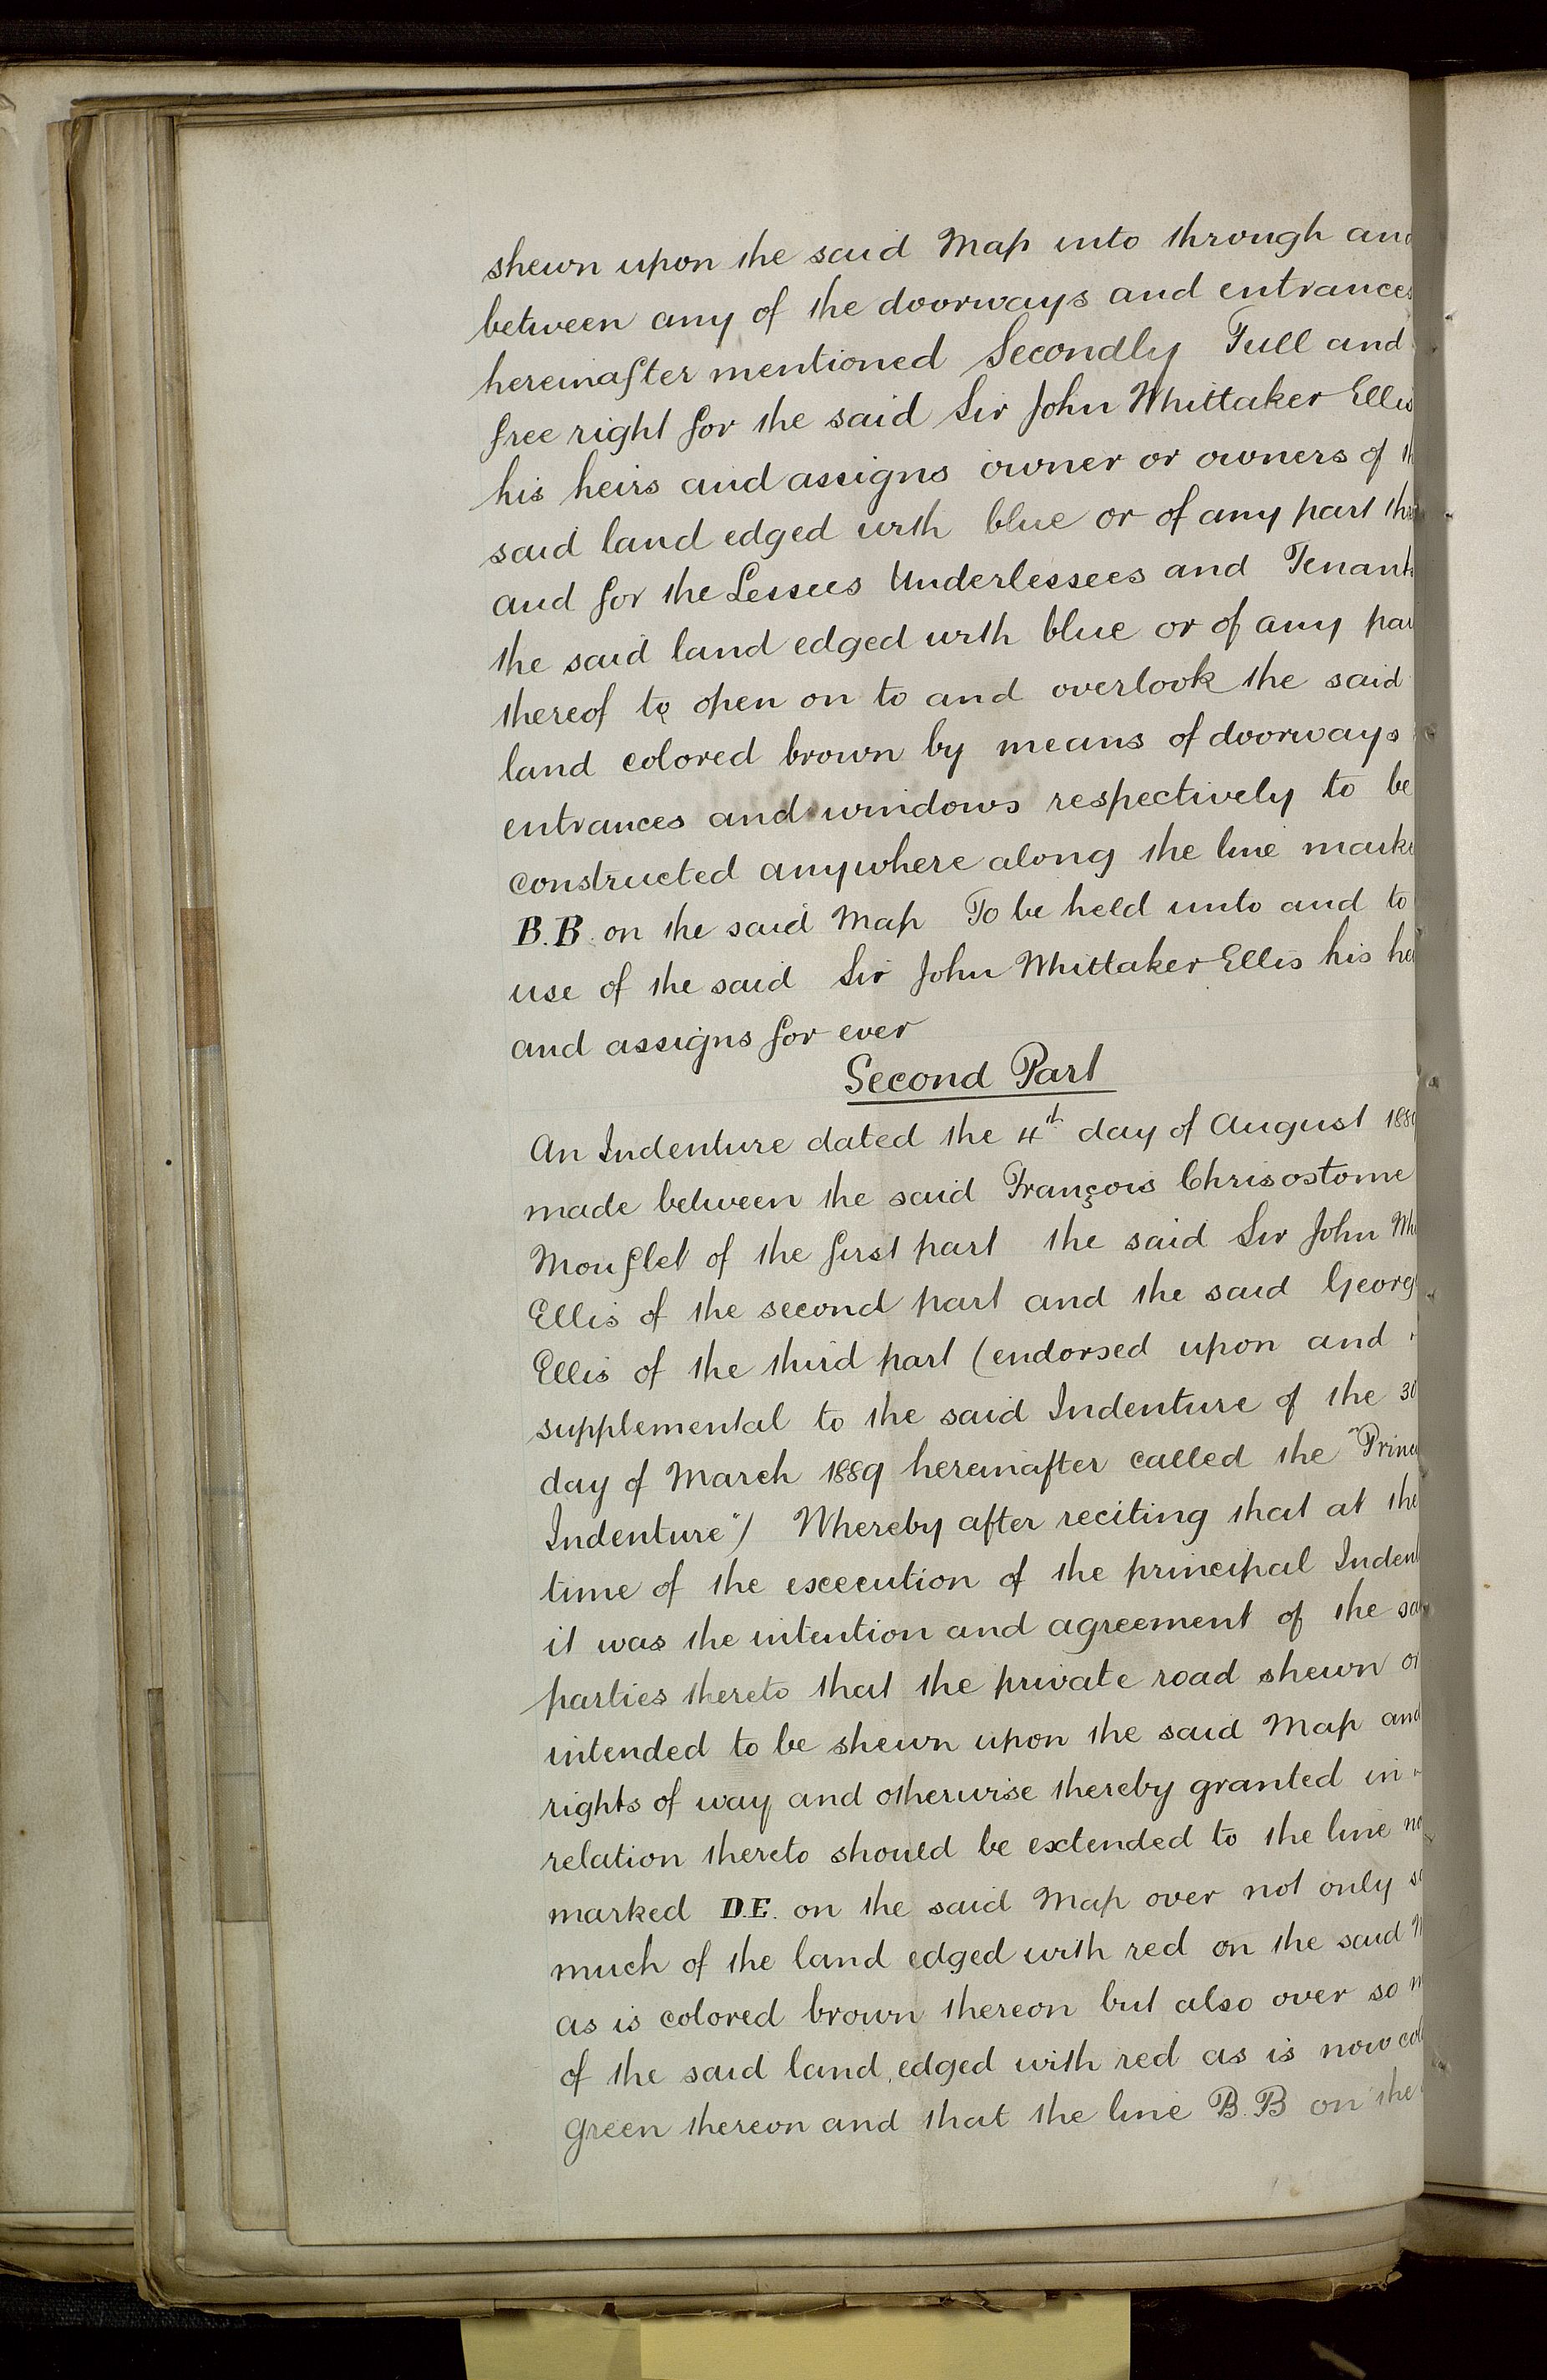 shewn upon the said Map into through and
between any of the doorways and entrances
hereinafter mentioned Secondly Full and
free right for the said Sir John Whittaker Ellis
his heirs and assigns owner or owners of
said land edged with blue or of any part
and for the Lessees Underlessees and Tenants
the said land edged with blue or of any
thereof to open on to and overlook the said
land colored brown by means of doorways
entrances and windows respectively to be
constructed anywhere along the line
B.B. on the said Map To be held unto and to
use of the said Sir John Whittaker Ellis his
and assigns for ever
Second Part
An Indenture dated the 4th day of August
made between the said François Chrisostome
Mouflet of the first part the said Sir John
Ellis of the second part and the said
Ellis of the third part (endorsed upon and
supplemental to the said Indenture of the 30
day of March 1889 hereinafter called the
Indenture") Whereby after reciting that at the
time of the execution of the principal
it was the intention and agreement of the
parties thereto that the private road shewn or
intended to be shewn upon the said Map and
rights of way and otherwise thereby granted in
relation thereto should be extended to the line
marked D.E. on the said Map over not only
much of the land edged with red on the said
as is colored brown thereon but also over so
of the said land edged with red as is now
green thereon and that the line B.B on the